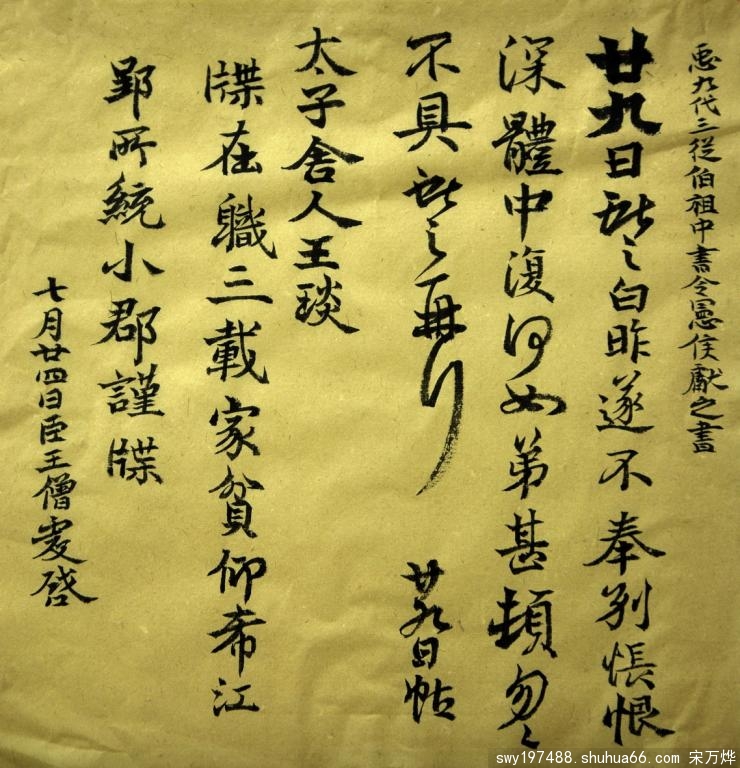 惡九代三從伯祖中書令憲侯獻之書
廿九日獻之白昨遂不奉別悵恨
深體中復何如弟甚頓勿〻
不具獻之再行
廿九日帖
太子舍人王琰
牒在職三載家貧仰希江
郢所統小郡謹牒
七月廿四日臣王僧虔啓
swy197488.shuhua66.com 宋万烨